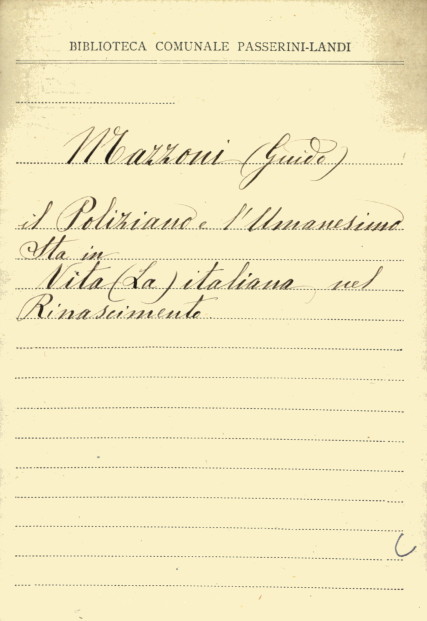 BIBLIOTECA COMUNALE PASSERINI-LANDI
Mazzoni (Guido)
il Poliziano e l'Umanesimo
Sta in
Vita (La) italiana nel
Rinascimento